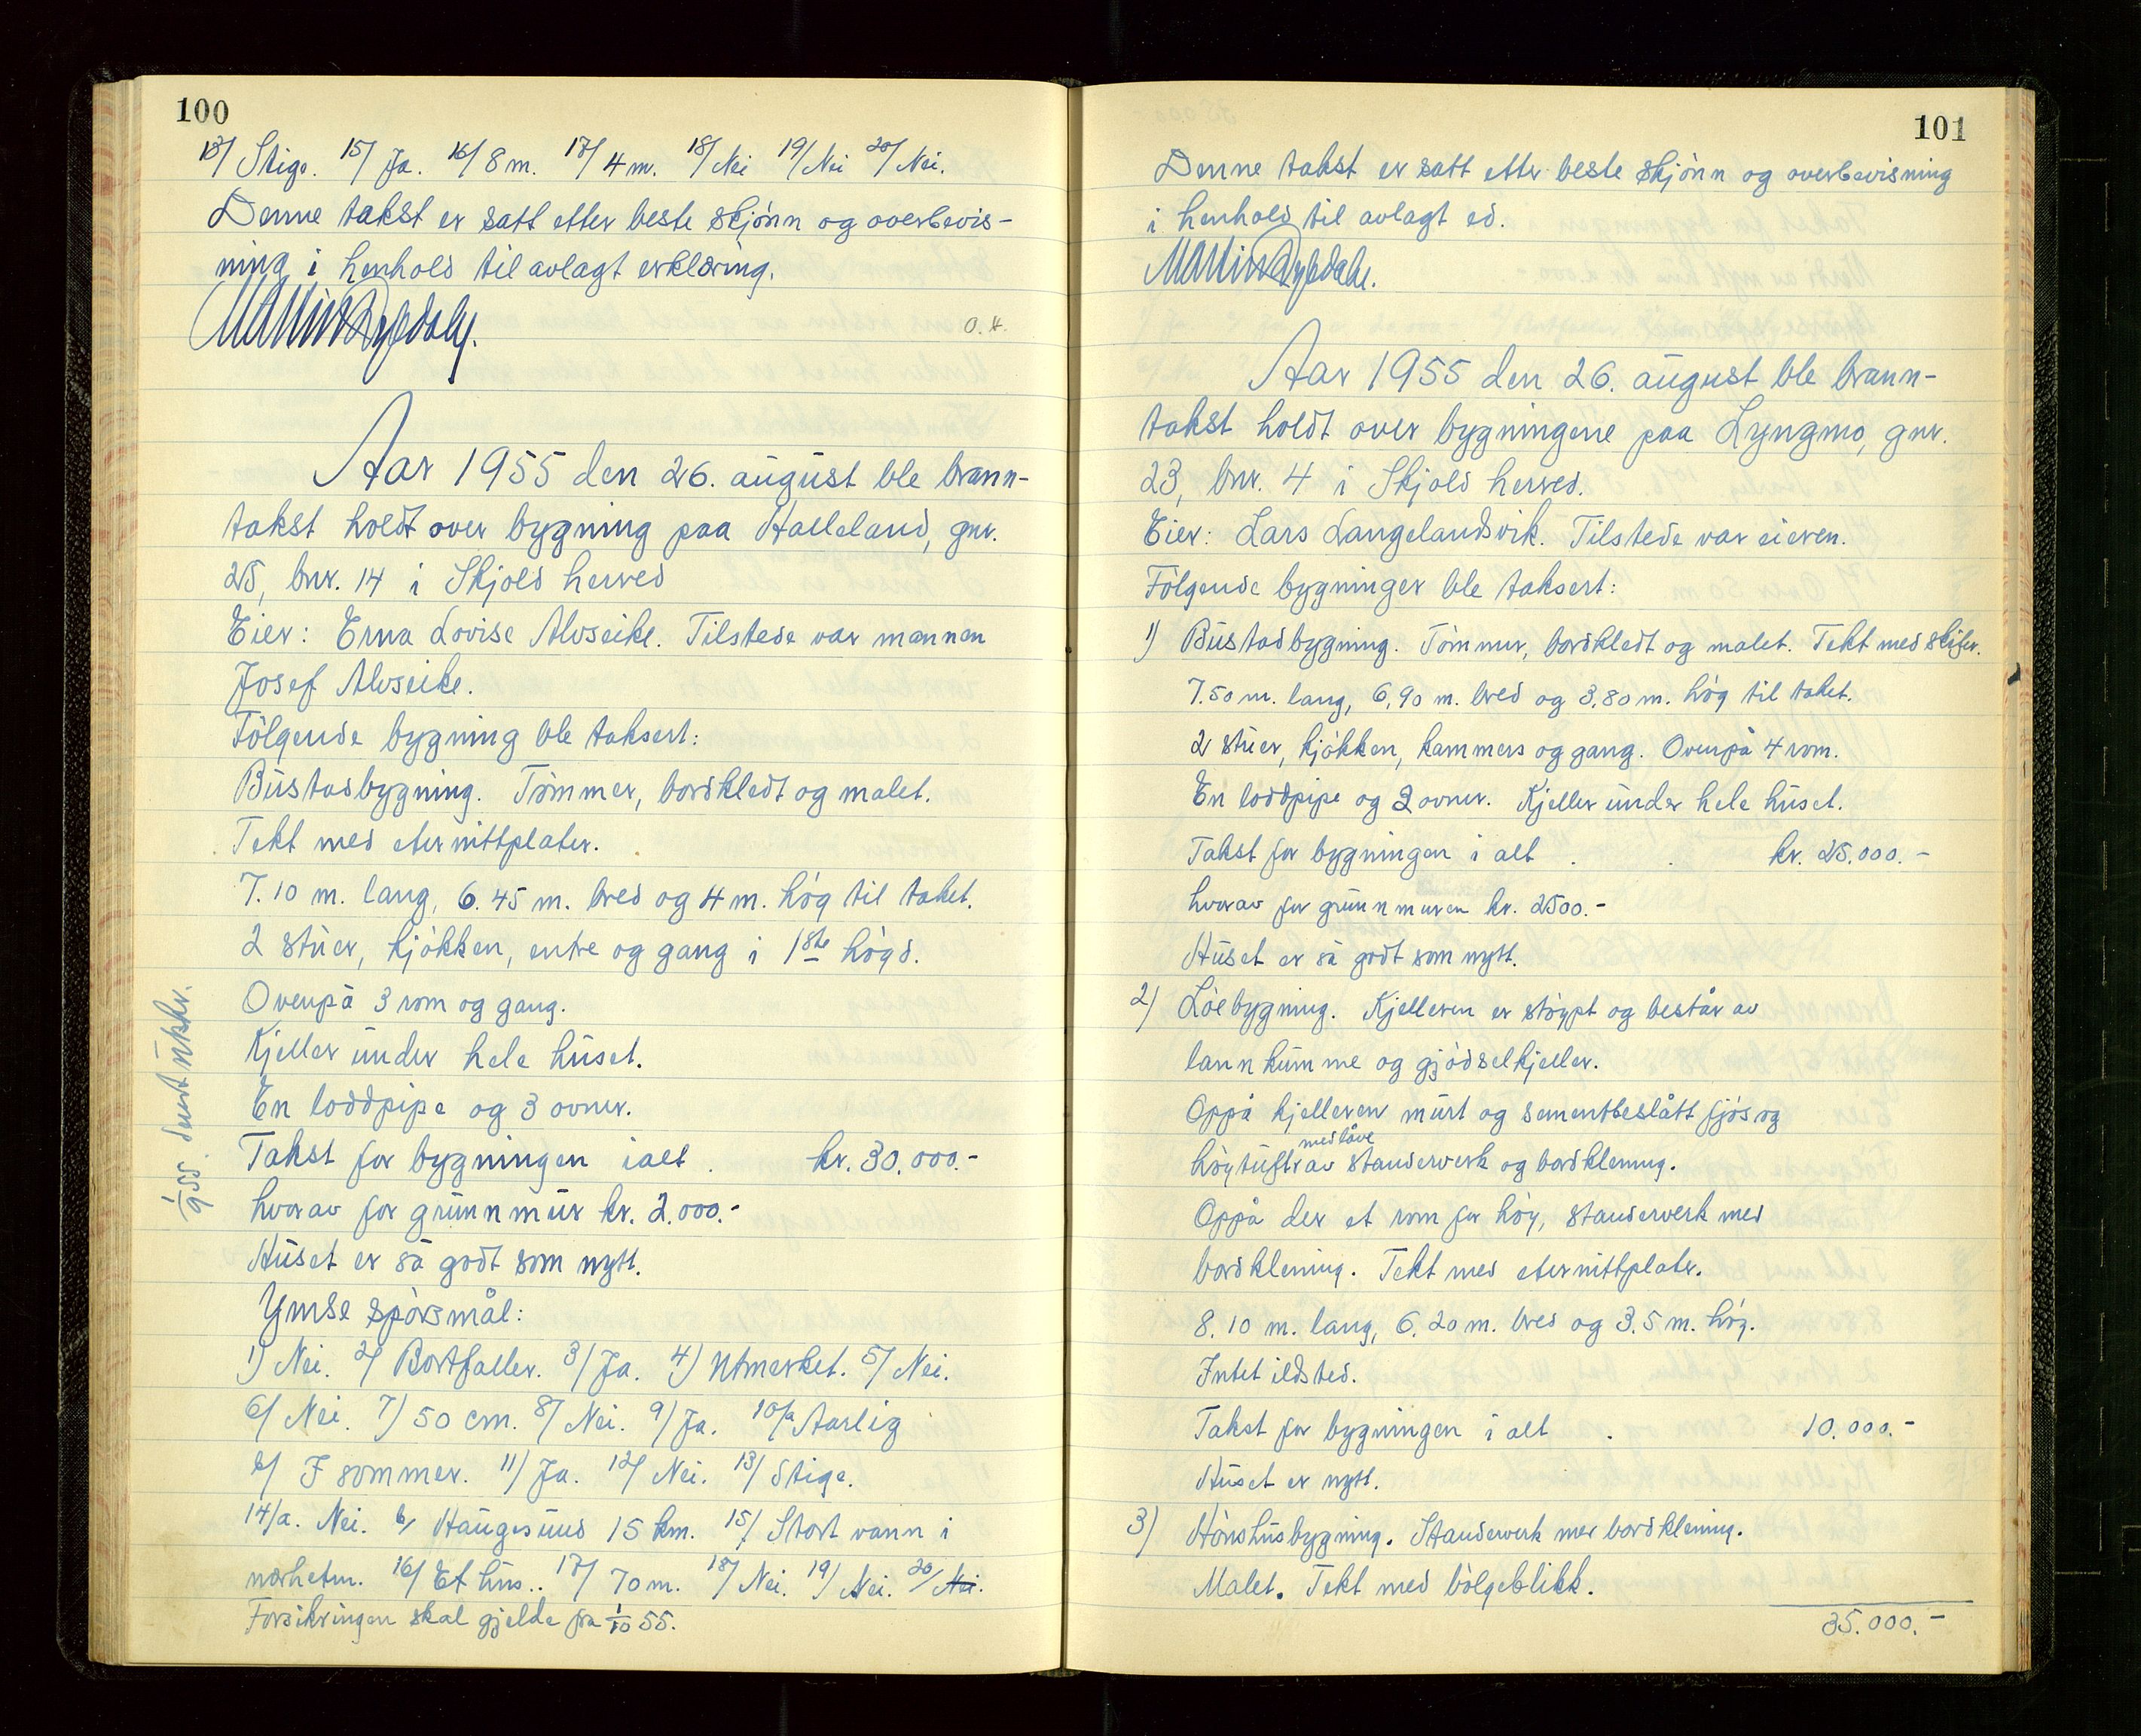 100
13/ Stige. 15/ Ja. 16/ 8 m. 17/ 4 m. 18/ Nei 19/ Nei 20/ Nei.
Denne takst er satt etter beste skjønn og overbevis-
ning i henhold til avlagt erklæring.
O. H.
Aar 1955 den 26. august ble brann-
takst holdt over bygning paa Halleland, gnr.
25, bnr. 14 i Skjold herred
Eier: Erna Lovise Alvseike. Tilstede var mannen
Josef Alvseike.
Følgende bygning ble taksert:
Bustadbygning. Tømmer, bordkledt og malet.
Tekt med eternittplater.
7.10 m. lang, 6.45 m. bred og 4 m. høg til taket.
2 stuer, kjøkken, entre og gang i 1ste høgd.
Ovenpå 3 rom og gang.
Kjeller under hele huset.
En loddpipe og 3 ovner.
Takst for bygningen ialt . kr. 30.000.-
hvorav for grunnmur kr. 2.000.-
Huset er så godt som nytt.
Ymse spørsmål:
1) Nei. 2/ Bortfaller. 3/ Ja. 4) Utmerket. 5/ Nei.
6/ Nei. 7) 50 cm. 8/ Nei. 9/ Ja. 10/a Aarlig
b/ I sommer. 11/ Ja. 12/ Nei. 13/ Stige.
14/a. Nei. b/ Haugesund 15 km. 15/ Stort vann i
nærheten. 16/ Et hus.. 17/ 70 m. 18/ Nei. 19/ Nei. 20/ Nei.
Forsikringen skal gjelde fra 1/10 55.
1/9 55. utskr.
101
Denne takst er satt etter beste skjønn og overbevisning
i henhold til avlagt ed.
Aar 1955 den 26. august ble brann-
takst holdt over bygningene paa Lyngmo, gnr.
23, bnr. 4 i Skjold herred.
Eier: Lars Langelandsvik. Tilstede var eieren.
Følgende bygninger ble taksert:
1) Bustadbygning. Tømmer, bordkledt og malet. Tekt med skifer.
7.50 m. lang, 6,90 m. bred og 3.80 m. høg til taket.
2 stuer, kjøkken, kammers og gang. Ovenpå 4 rom.
En loddpipe og 2 ovner. Kjeller under hele huset.
Takst for bygningen i alt . . kr. 25.000.-
hvorav for grunnmuren kr. 2500.-
Huset er så godt som nytt.
2) Løebygning. Kjelleren er støypt og består av
lannkumme og gjødselkjeller.
Oppå kjelleren murt og sementbeslått fjøs og
med låve
høytuft av standerverk og bordklening.
Oppå der et rom for høy, standerverk med
bordklening. Tekt med eternittplater.
8.10 m. lang, 6.20 m. bred og 3.5 m. høg.
Intet ildsted.
Takst for bygningen i alt . 10.000.-
Huset er nytt.
3) Hønshusbygning. Standerverk mer bordklening.
Malet. Tekt med bølgeblikk.
35.000.-